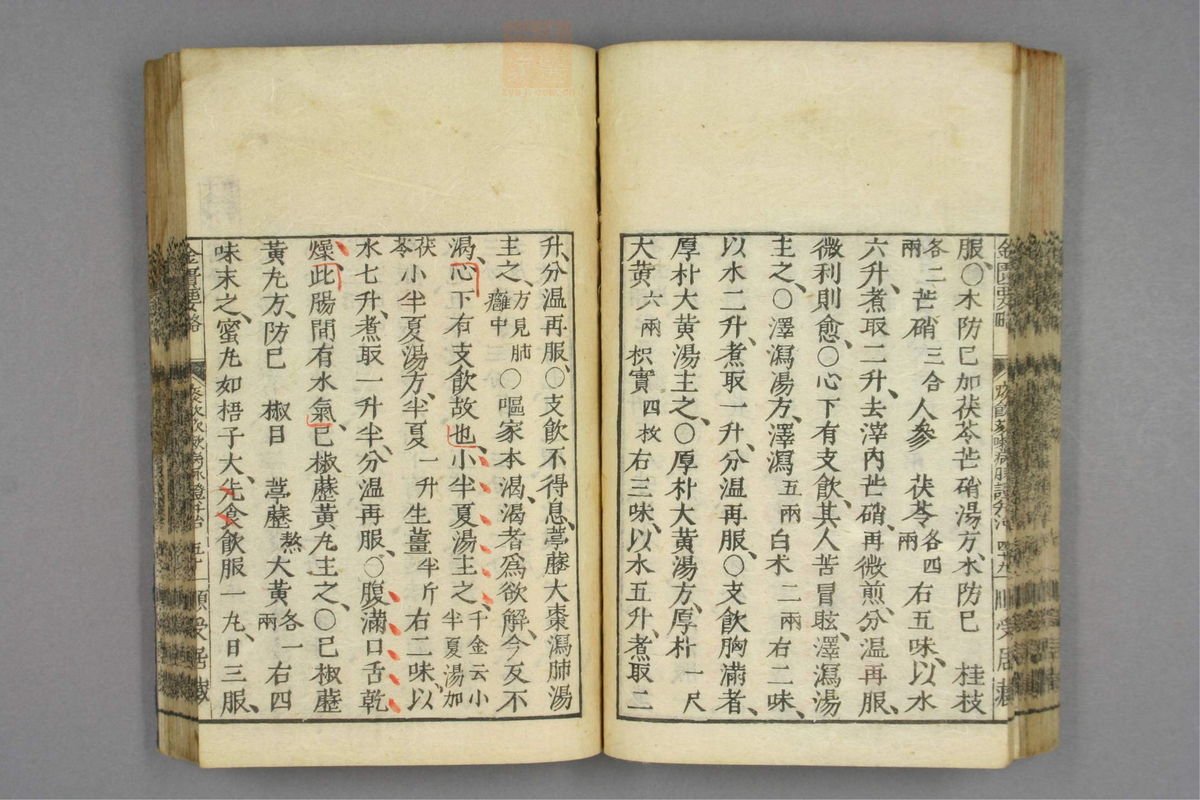 服、○木防已加茯苓芒硝湯方、木防已　桂枝
各二兩芒硝三合人參　茯苓各四兩右五味、以水
六升、煮取二升、去滓、內芒硝、再微煎、分溫再服、
微利則愈、○心下有支飲、其人苦冒眩、澤瀉湯
主之、○澤瀉湯方、澤瀉五兩白朮二兩右二味、
以水二升、煮取一升、分溫再服、○支飲胸滿者、
厚朴大黃湯主之、○厚朴大黃湯方、厚朴一尺
大黃六兩枳實四枚右三味、以水五升、煮取二
升、分溫再服、○支飲不得息、葶藶大棗瀉肺湯
主之、方見肺癰中○嘔家本渴、渴者爲欲解、今反不
渴、心下有支飲故也、小半夏湯主之、千金云小半夏湯加茯苓
小半夏湯方、半夏一升生薑半斤右二味、以
水七升、煮取一升半、分溫再服、○腹滿口舌乾
燥、此腸間有水氣、已椒藶黃丸主之、○已椒藶
黃丸方、防已　椒目　葶藶熬大黃各一兩右四
味末之、蜜丸如梧子大、先食飲服一丸、日三服、
順受居藏